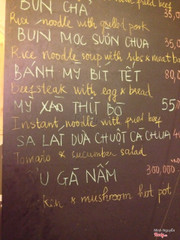 BÚN CHẢ 35,
Rice noodle with grilled pork
BÚN MỌC SƯỜN CHUA 35,0
Rice noodle soup with ribs & meat bal
BÁNH MỲ BÍT TẾT 80,
Beefsteak with egg & bread
MỲ XÀO THỊT BÒ 55
Instant noodle with fried beef
SA LÁT DƯA CHUỘT CÀ CHUA 40
Tomato & cucumber salad
U GÀ NẤM 300,000
ken & mushroom hot pot